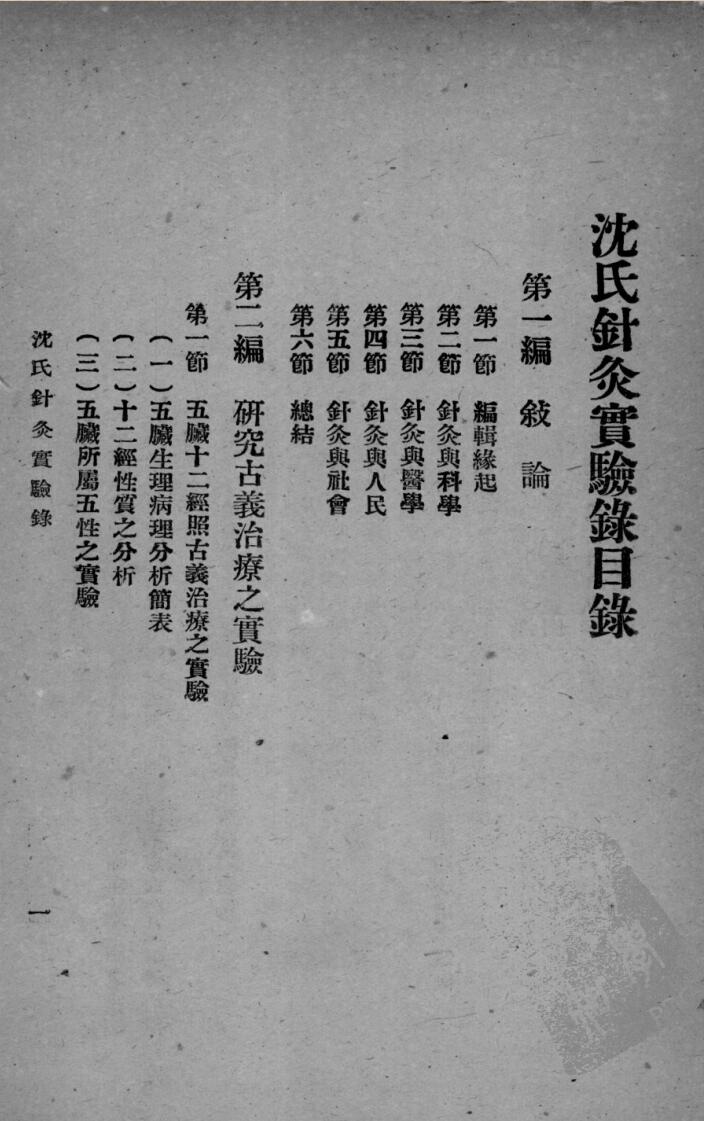 沈氏針灸實驗錄目錄
第一編 敍論
第一節 編輯緣起
第二節 針灸與科學
第三節 針灸與醫學
第四節 針灸與人民
第五節 針灸與社會
第六節 總結
第二編 硏究古義治療之實驗
第一節 五臟十二經照古義治療之實驗
(一)五臟生理病理分析簡表
(二)十二經性質之分析
(三)五臟所屬五性之實驗
沈氏針灸實驗錄
一